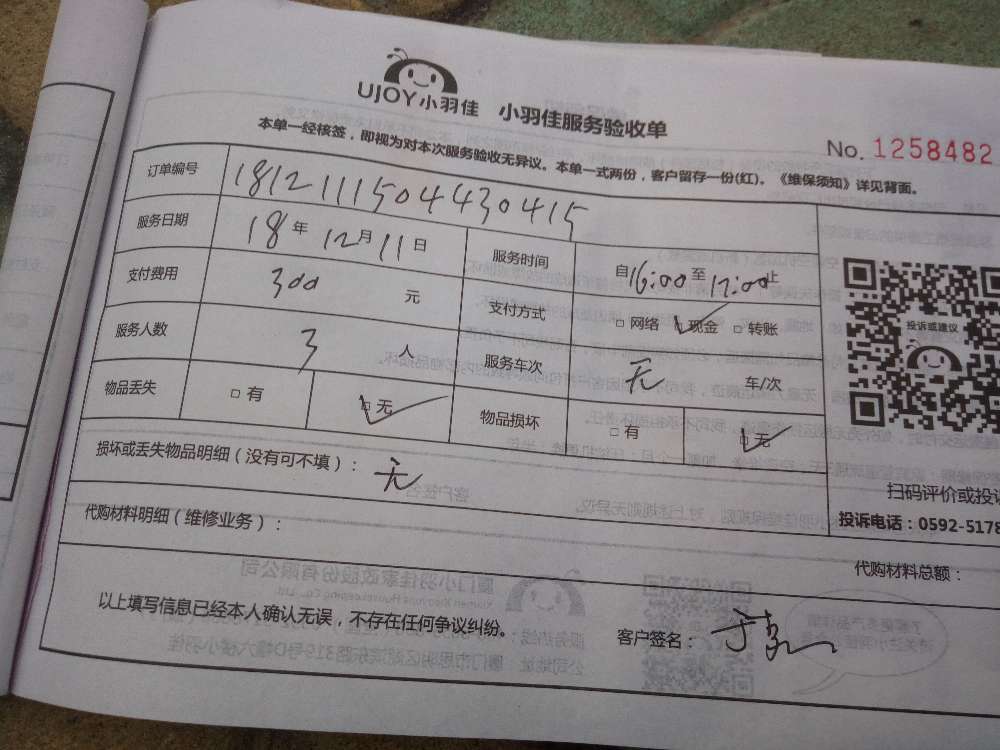 UJOY小羽佳 小羽佳服务验收单
本单一经核签，即视为对本次服务验收无异议。本单一式两份，客户留存一份(红)。《维保须知》详见背面。
No. 1258482
订单编号 181211150443 0415
服务日期 18年 12月 11日 服务时间 自16:00至17:00止
支付费用 300 元 支付方式 □网络 □现金 □转账
服务人数 3 人 服务车次 无 车/次
物品丢失 □有 □无 物品损坏 □有 □无
损坏或丢失物品明细（没有可不填）： 无
代购材料明细（维修业务）：
投诉或建议
扫码评价或投诉
投诉电话：0592-5178
代购材料总额：
以上填写信息已经本人确认无误，不存在任何争议纠纷。
客户签名：